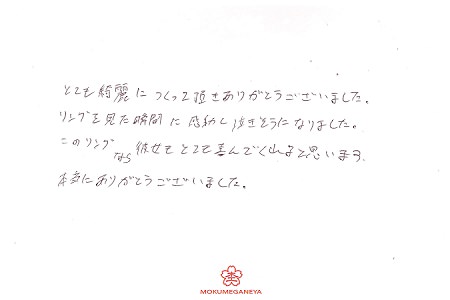 とても綺麗につくって頂きありがとうございました。
リングを見た瞬間に感動し泣きそうになりました。
このリングなら彼女もとても喜んでくれると思います。
本当にありがとうございました。
MOKUMEGANEYA